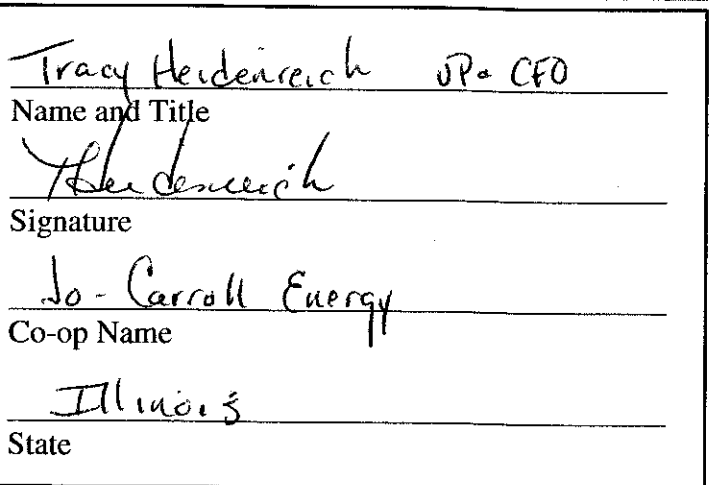 Tracy Heidenreich VP & CFO
Name and Title
THeidenreich
Signature
Jo-Carroll Energy
Co-op Name
Illinois
State